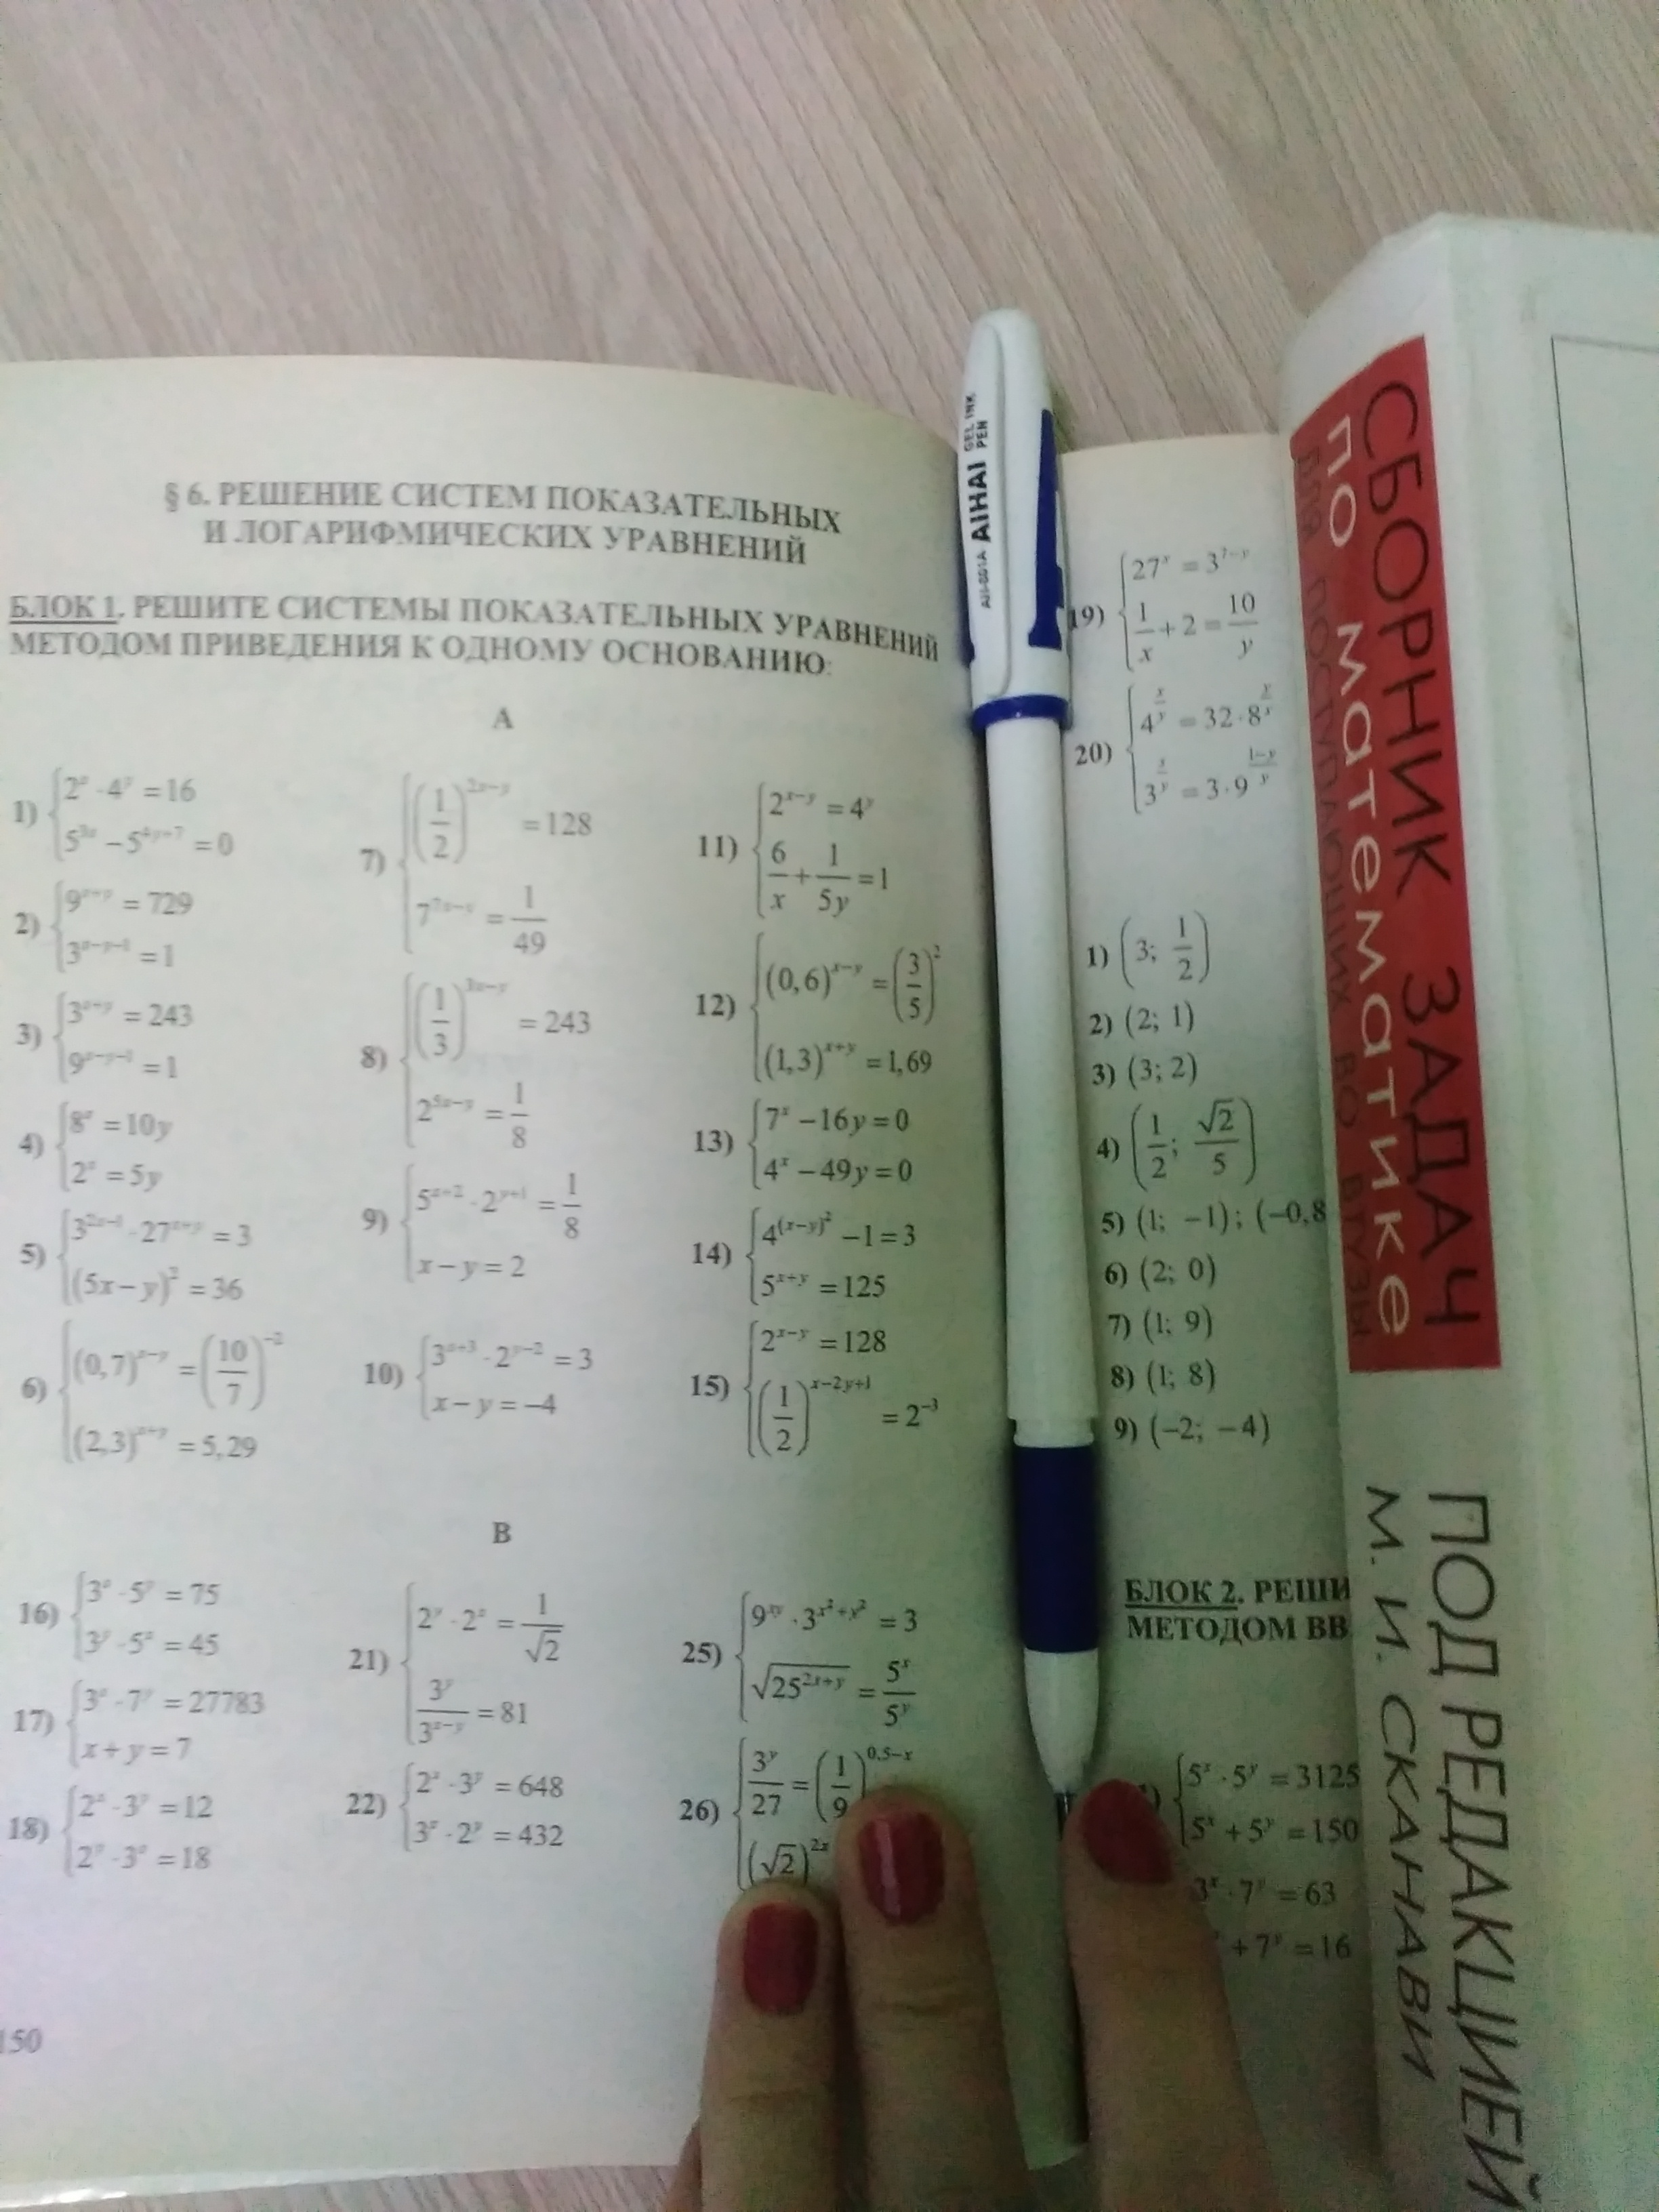 § 6. РЕШЕНИЕ СИСТЕМ ПОКАЗАТЕЛЬНЫХ
И ЛОГАРИФМИЧЕСКИХ УРАВНЕНИЙ
БЛОК 1. РЕШИТЕ СИСТЕМЫ ПОКАЗАТЕЛЬНЫХ УРАВНЕНИЙ
МЕТОДОМ ПРИВЕДЕНИЯ К ОДНОМУ ОСНОВАНИЮ:
A
1) { 2^x · 4^y = 16
5^{3x} − 5^{4y+7} = 0
2) { 9^{x+y} = 729
3^{x−y−1} = 1
3) { 3^{x+y} = 243
9^{x−y−1} = 1
4) { 8^x = 10y
2^x = 5y
5) { 3^{2x−1} · 27^{x+y} = 3
(5x − y)^2 = 36
6) { (0,7)^{x−y} = (10/7)^{−2}
(2,3)^{x+y} = 5,29
7) { (1/2)^{2x−y} = 128
= 1/49
8) { (1/3)^{3x−y} = 243
2^{5x−y} = 1/8
9) { 5^{x+2} · 2^{y+1} = 1/8
x − y = 2
10) { 3^{x+3} · 2^{y−2} = 3
x − y = −4
11) { 2^{x−y} = 4^y
6/x + 1/5y = 1
12) { (0,6)^{x−y} = (3/5)^2
(1,3)^{x+y} = 1,69
13) { 7^x − 16y = 0
4^x − 49y = 0
14) { 4^{(x−y)^2} − 1 = 3
5^{x+y} = 125
15) { 2^{x−y} = 128
(1/2)^{x−2y+1} = 2^{−3}
B
16) { 3^x · 5^y = 75
3^y · 5^x = 45
17) { 3^x · 7^y = 27783
x + y = 7
18) { 2^x · 3^y = 12
2^y · 3^x = 18
21) { 2^y · 2^x = 1/√2
3^y/3^{x−y} = 81
22) { 2^x · 3^y = 648
3^x · 2^y = 432
25) { 9^{xy} · 3^{x^2+y^2} = 3
√25^{2x+y} = 5^x/5^y
26) { 3^y/27 = (1/9)^{0,5−x}
(√2)^{2x}
150
19) { = 3^{7−y}
1/x + 2 = 10/y
20) { 4^{x/y} = 32 · 8
3^{x/y} = 3 · 9^{(1−y)/y}
1) (3; 1/2)
2) (2; 1)
3) (3; 2)
4) (1/2; √2/5)
5) (1; −1); (−0,8
6) (2; 0)
7) (1; 9)
8) (1; 8)
9) (−2; −4)
БЛОК 2. РЕШИ
МЕТОДОМ ВВ
) { 5^x · 5^y = 3125
5^x + 5^y = 150
3^x · 7^y = 63
+ 7^y = 16
AIHAI GEL INK
PEN
СБОРНИК ЗАДАЧ
по математике
ДЛЯ ПОСТУПАЮЩИХ ВО ВТУЗЫ
ПОД РЕДАКЦИЕЙ
М. И. СКАНАВИ